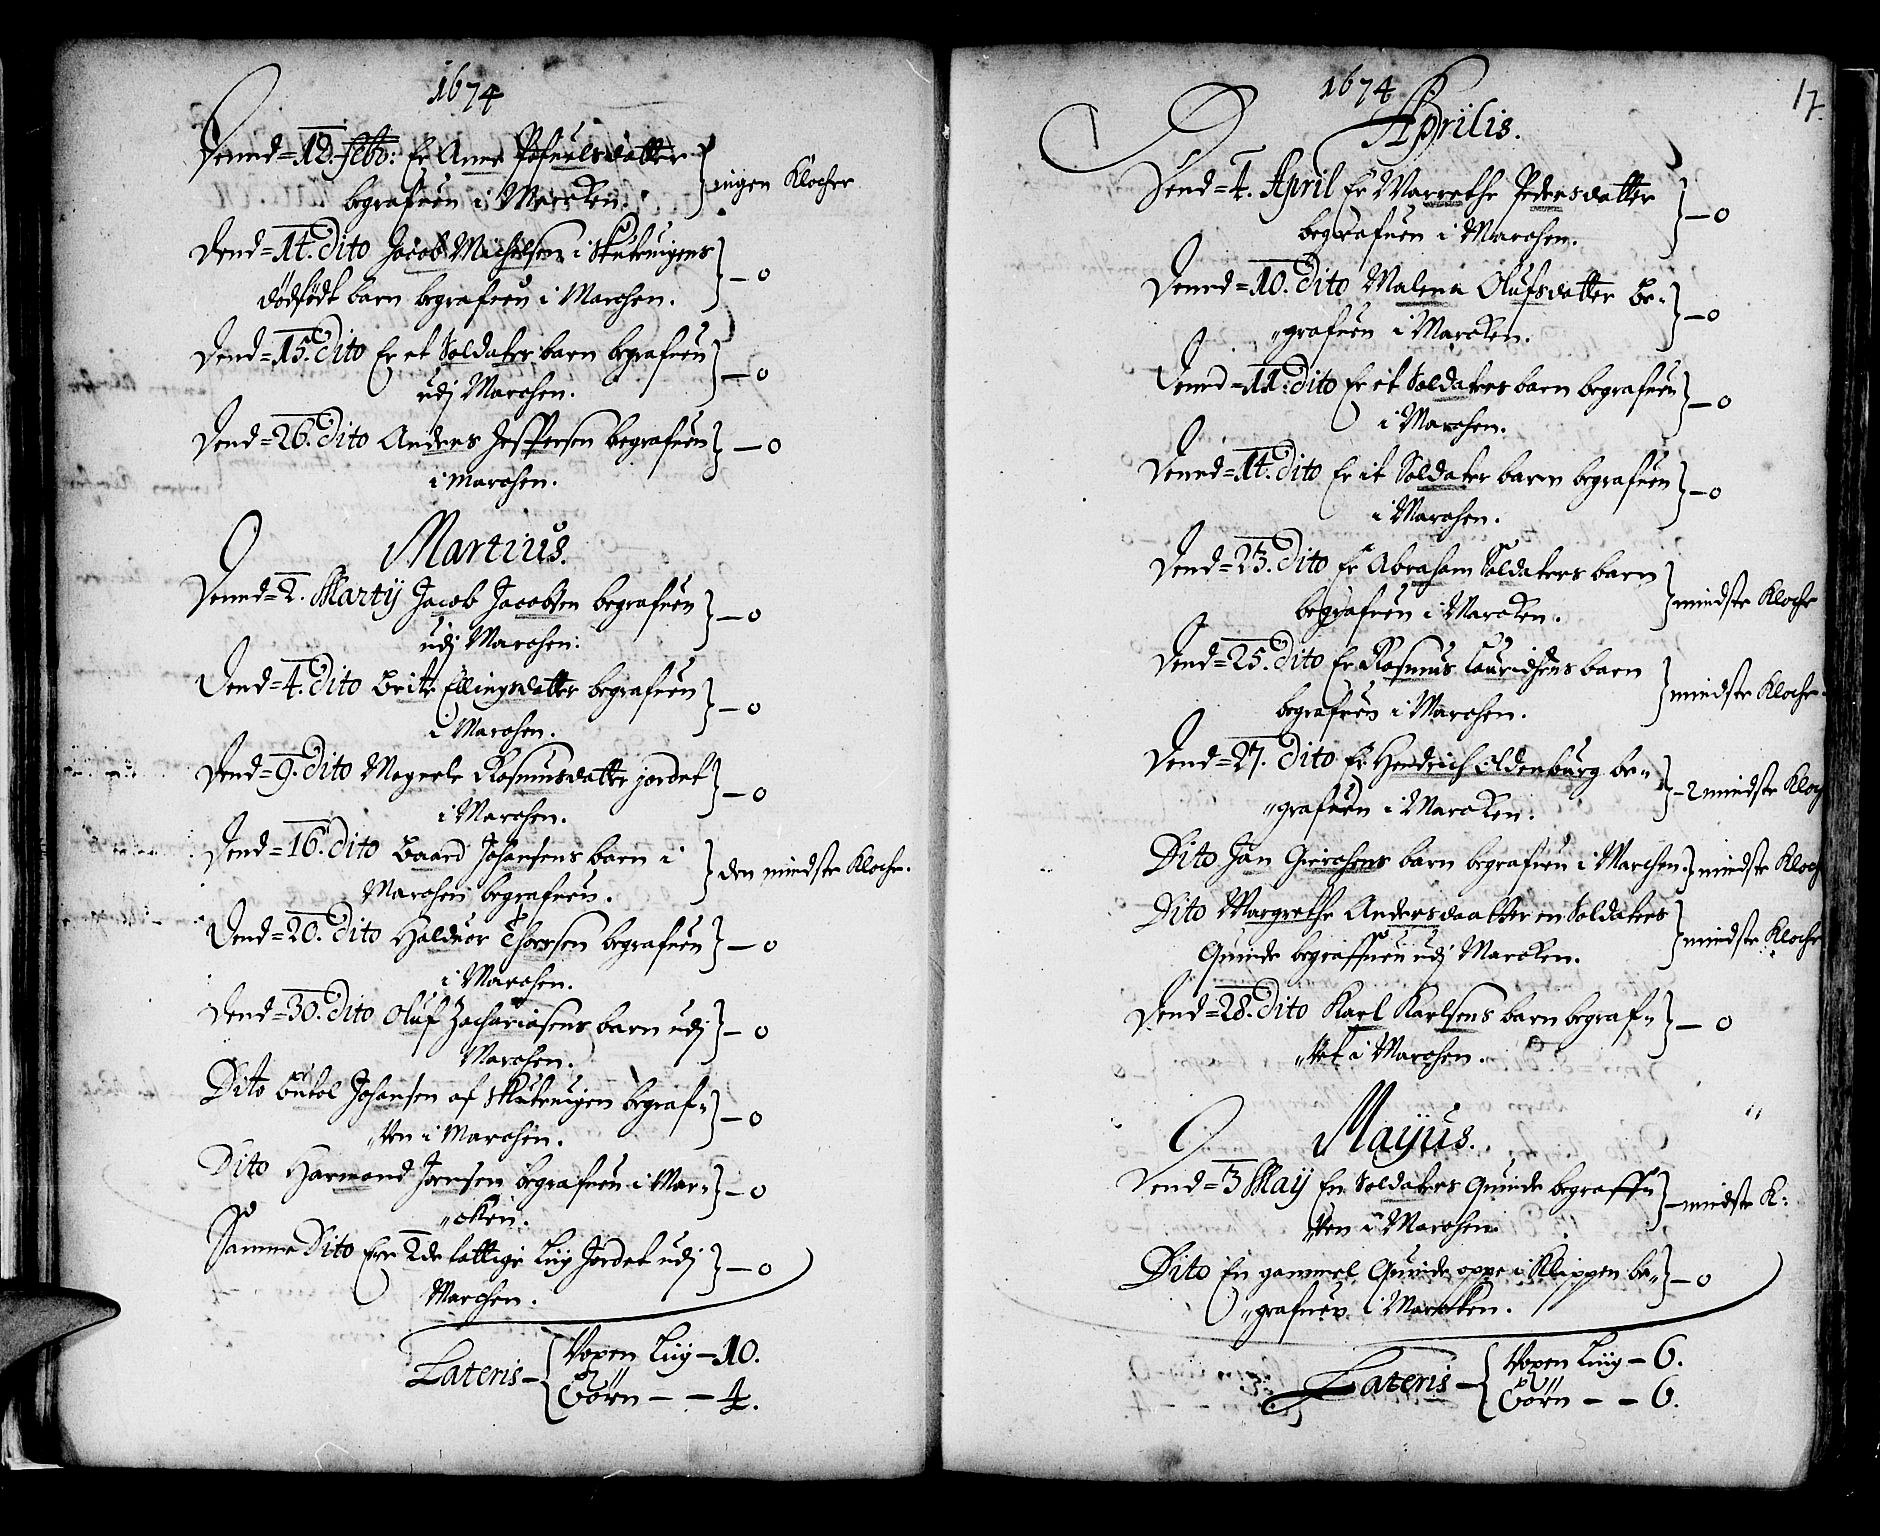 1674
Dennd=12. febr: Er Anne Pofvelsdatter
begrafuen i Marcken.
ingen Klocker
Dend=14. Dito Jacob Michelsen i Skuteuigens
dödfödt barn begrafuen i Marchen.
—0
Dend=15. Dito Er et Soldater barn begrafuen
udj Marchen.
—0
Dend=26. Dito Anders Jeffersen begrafuen
i Marchen.
—0
Martius.
Dennd=2. Martij Jacob Jacobsen begrafuen
udj Marchen:
—0
Dend=4. Dito Brite Ellingsdatter begrafuen
i Marchen.
—0
Dend=9. Dito Magnele Rasmusdatter jordet
i Marchen.
—0
Dend=16. Dito Baard Johansens barn i
Marchen begrafuen.
den mindste Klocke.
Dend=20. Dito Halduor Thorsen begrafuen
i Marchen.
—0
Dend=30. Dito Oluf Zachariasens barn udj
Marchen.
—0
Dito Butol Johansen af Skuteuigen begraf"
"ven i Marchen.
—0
Dito Harmand Jensen begrafuen i Mar"
"cken.
—0
Samme Dito Ere 2de fattige Liig Jordet udj
Marchen.
—0
Lateris — Voxen Liig — 10.
Börn — — 4.
17
1674
Aprilis.
Dend=4. April Er Marrethe Pedersdatter
begrafuen i Marchen.
—0
Dennd=10. Dito Malena Olufsdatter be"
"grafuen i Marcken.
—0
Dennd=11. Dito Er et Soldaters barn begrafuen
i Marchen.
—0
Dennd=14. Dito Er it Soldater barn begrafuen
i Marchen.
—0
Dend=23. Dito Er Abraham Soldaters barn
begrafuen i Marcken.
mindste Klocke
Dend=25. Dito Er Rasmus Lauridsens barn
begrafuen i Marchen.
mindste Klocke
Dend=27. Dito Er Hendrich Oldenburg be"
"grafuen i Marcken.
—2 mindste Kloch
Dito Jan Gierchens barn begrafuen i Marchen.
mindste Kloch
Dito Margrethe Andersdaatter en Soldaters
Quinde begraffuen udj Marcken.
mindste Klocke
Dend=28. Dito Karl Karlsens barn begraf"
"vet i Marchen.
—0
Mayus.
Dend=3 May En Soldaters Quinde begraffu
"ven i Marchen.
—mindste K:
Dito En gammel Quinde oppe i Klippen be"
"grafuen i Marcken.
—0
Lateris — Voxen Liig — 6.
Börn — — 6.